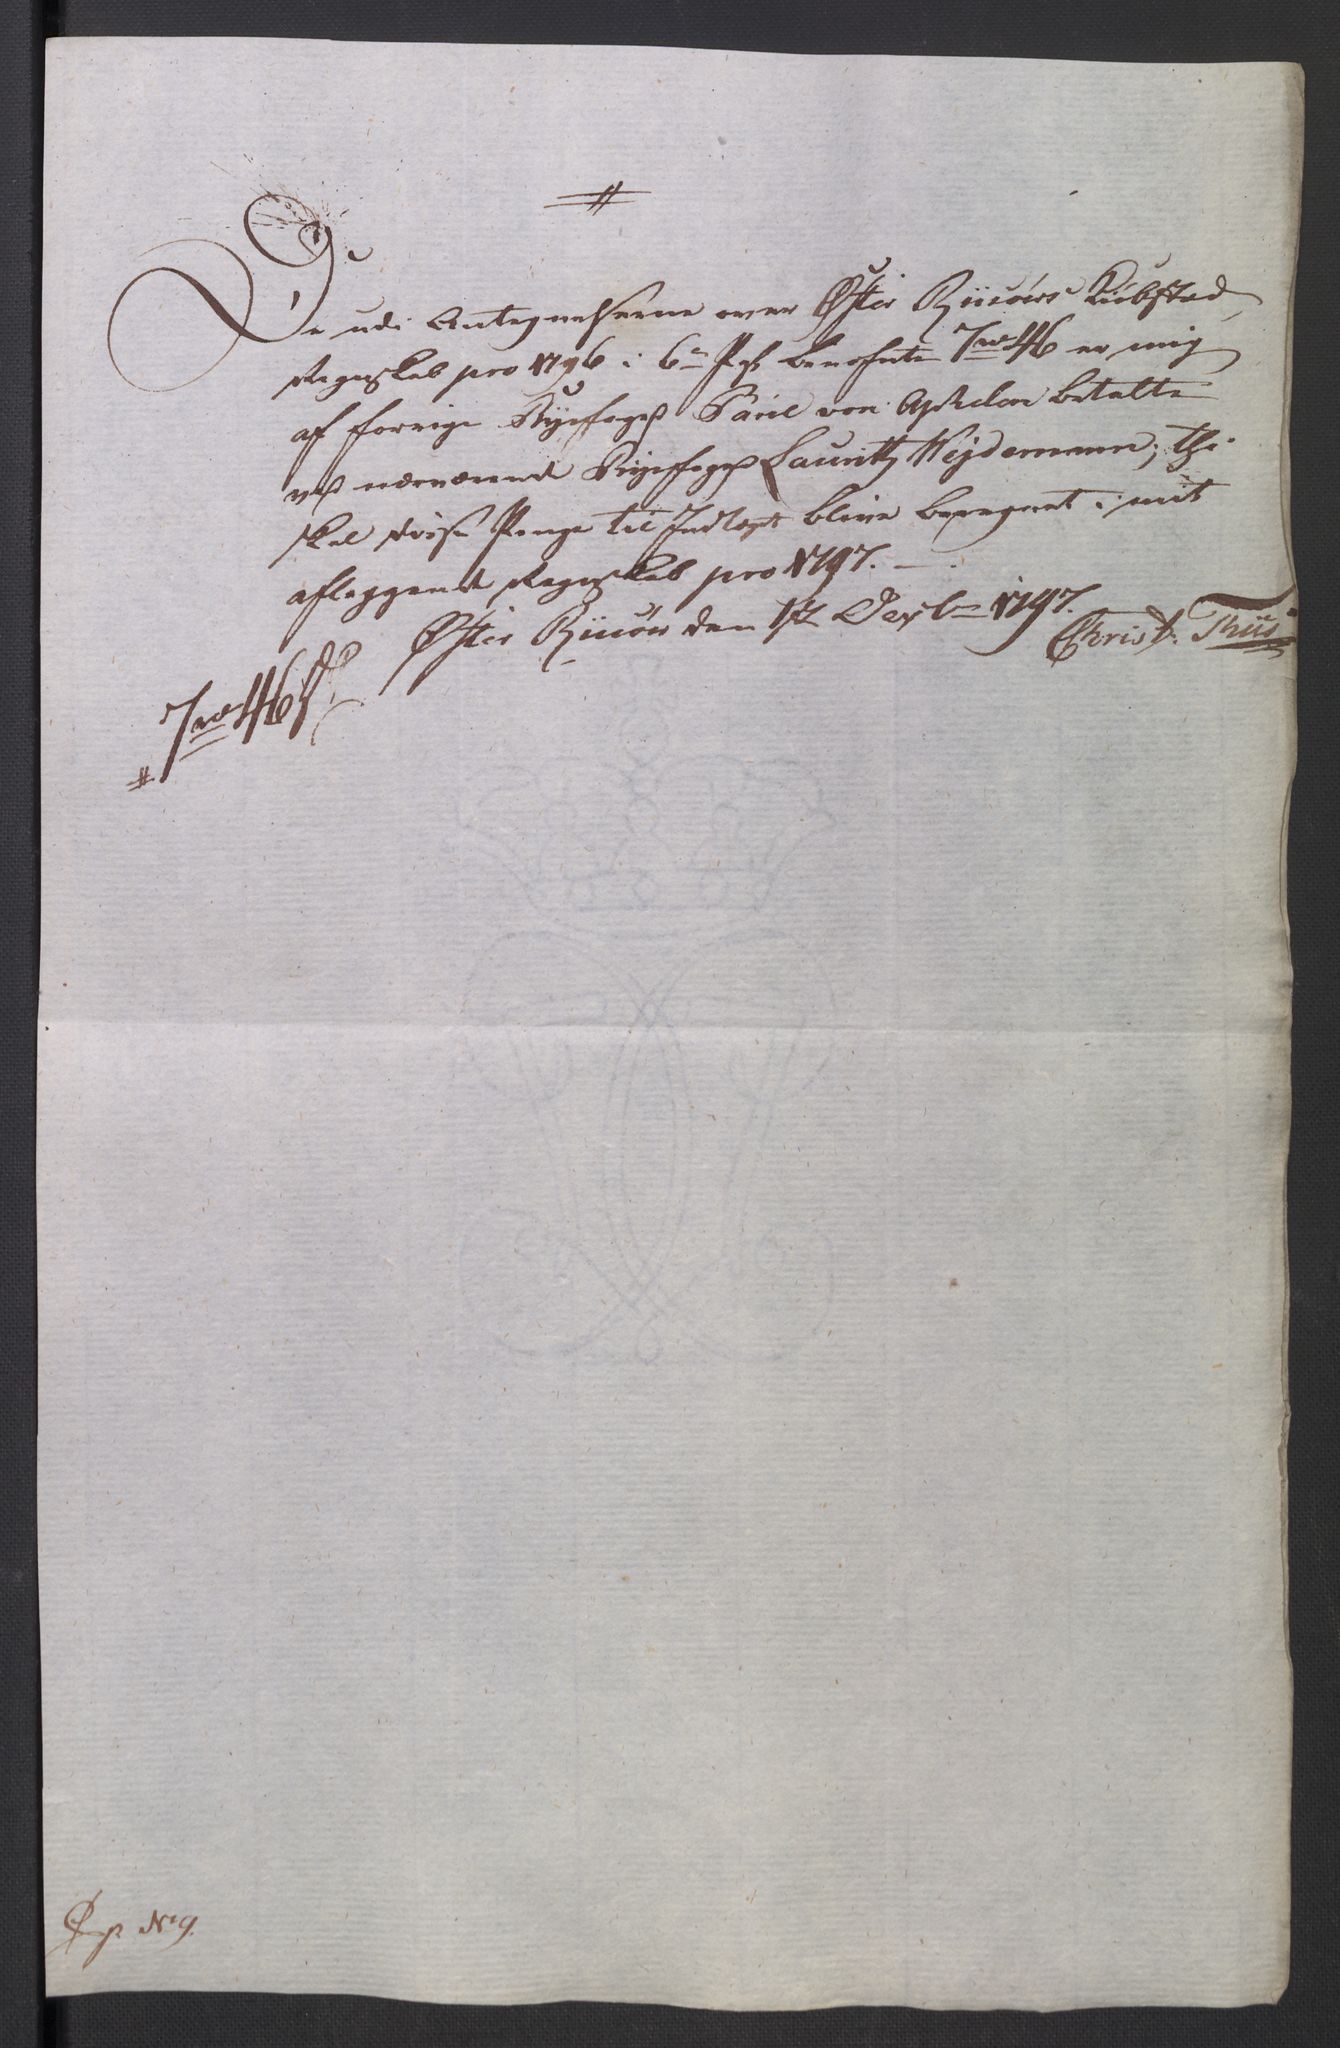 De udi Antegnelserne over Øster Riisöers Kiöbstad
Regnskab pro 1796 i 6te Post benefnte 7 46 er mig
af forrige Byefoget Paül von Apholen betalte
ved nærværende Byefoget Lauritz Weydemann; thi
skal disse Penge til Indtægt blive beregnet i mit
aflæggende Regnskab pro 1797.
Øster Riisöer den 1797.
Christ. Thüs
7 46
No 9.